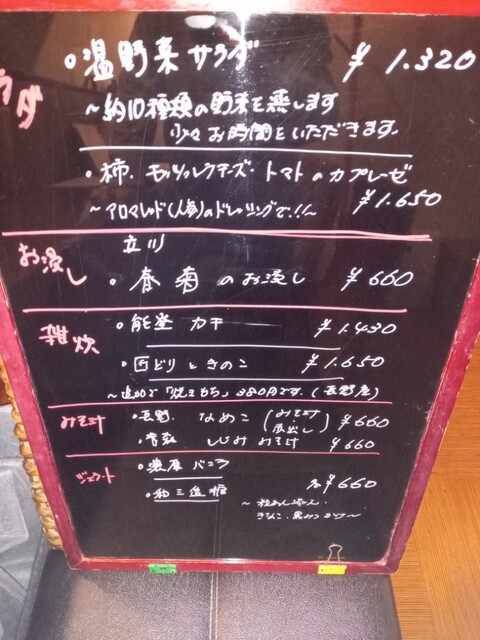 ラダ
・温野菜サラダ ¥1.320
～約10種類の野菜を蒸します
少々お時間をいただきます。
・柿.モッツァレラチーズ・トマトのカプレーゼ
¥1.650
～アロマレッド(人参)のドレッシングで!!～
お浸し
立川
・春菊のお浸し ¥660
雑炊
・能登 カキ ¥1.430
・どりときのこ ¥1.650
～追加で「焼きもち」380円です。(長野産)
みそ汁
・長野. なめこ (みそ汁・赤出し) ¥660
・青森 しじみ みそ汁 ¥660
ジェラート
・濃厚バニラ
・和三盆糖 各¥660
～粒あん添え.
きなこ.黒みつかけ～